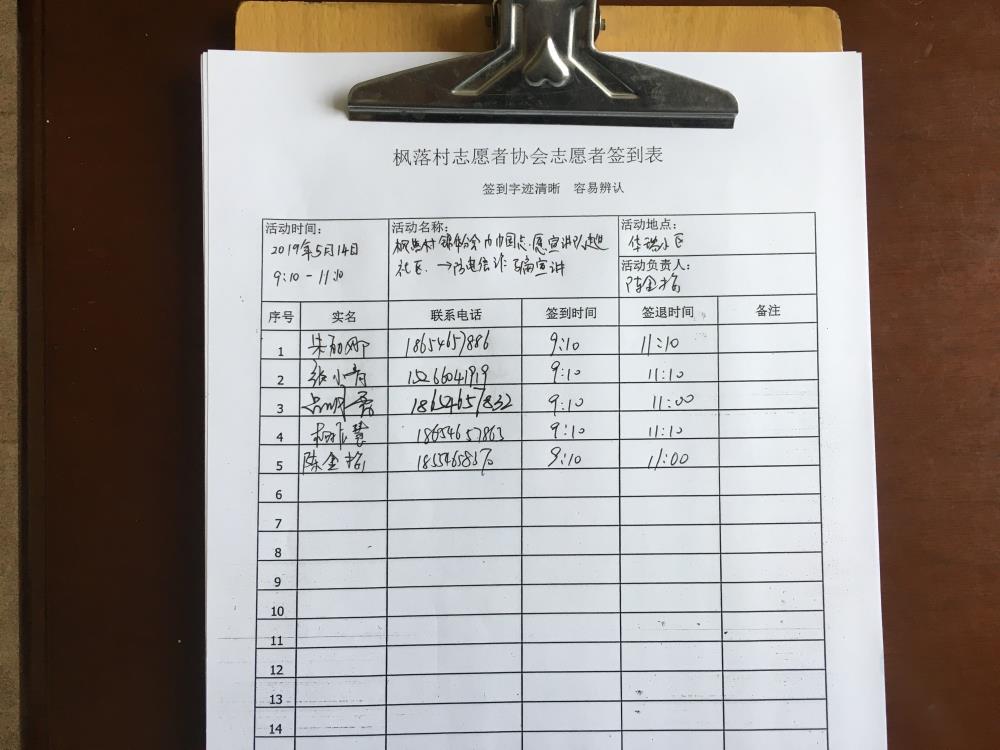 枫落村志愿者协会志愿者签到表
签到字迹清晰 容易辨认
活动时间:
2019年5月14日
9:10-11:10
活动名称:
枫落村 巾帼志愿宣讲队进
社区.→防电信诈骗宣讲
活动地点:
华瑞小区
活动负责人:
陈金梅
序号 实名 联系电话 签到时间 签退时间 备注
1 朱丽娜 18654657886 9:10 11:10
2 张小青 15266041919 9:10 11:10
3 18654657832 9:10 11:00
4 18654657863 9:10 11:10
5 陈金梅 9:10 11:00
6
7
8
9
10
11
12
13
14